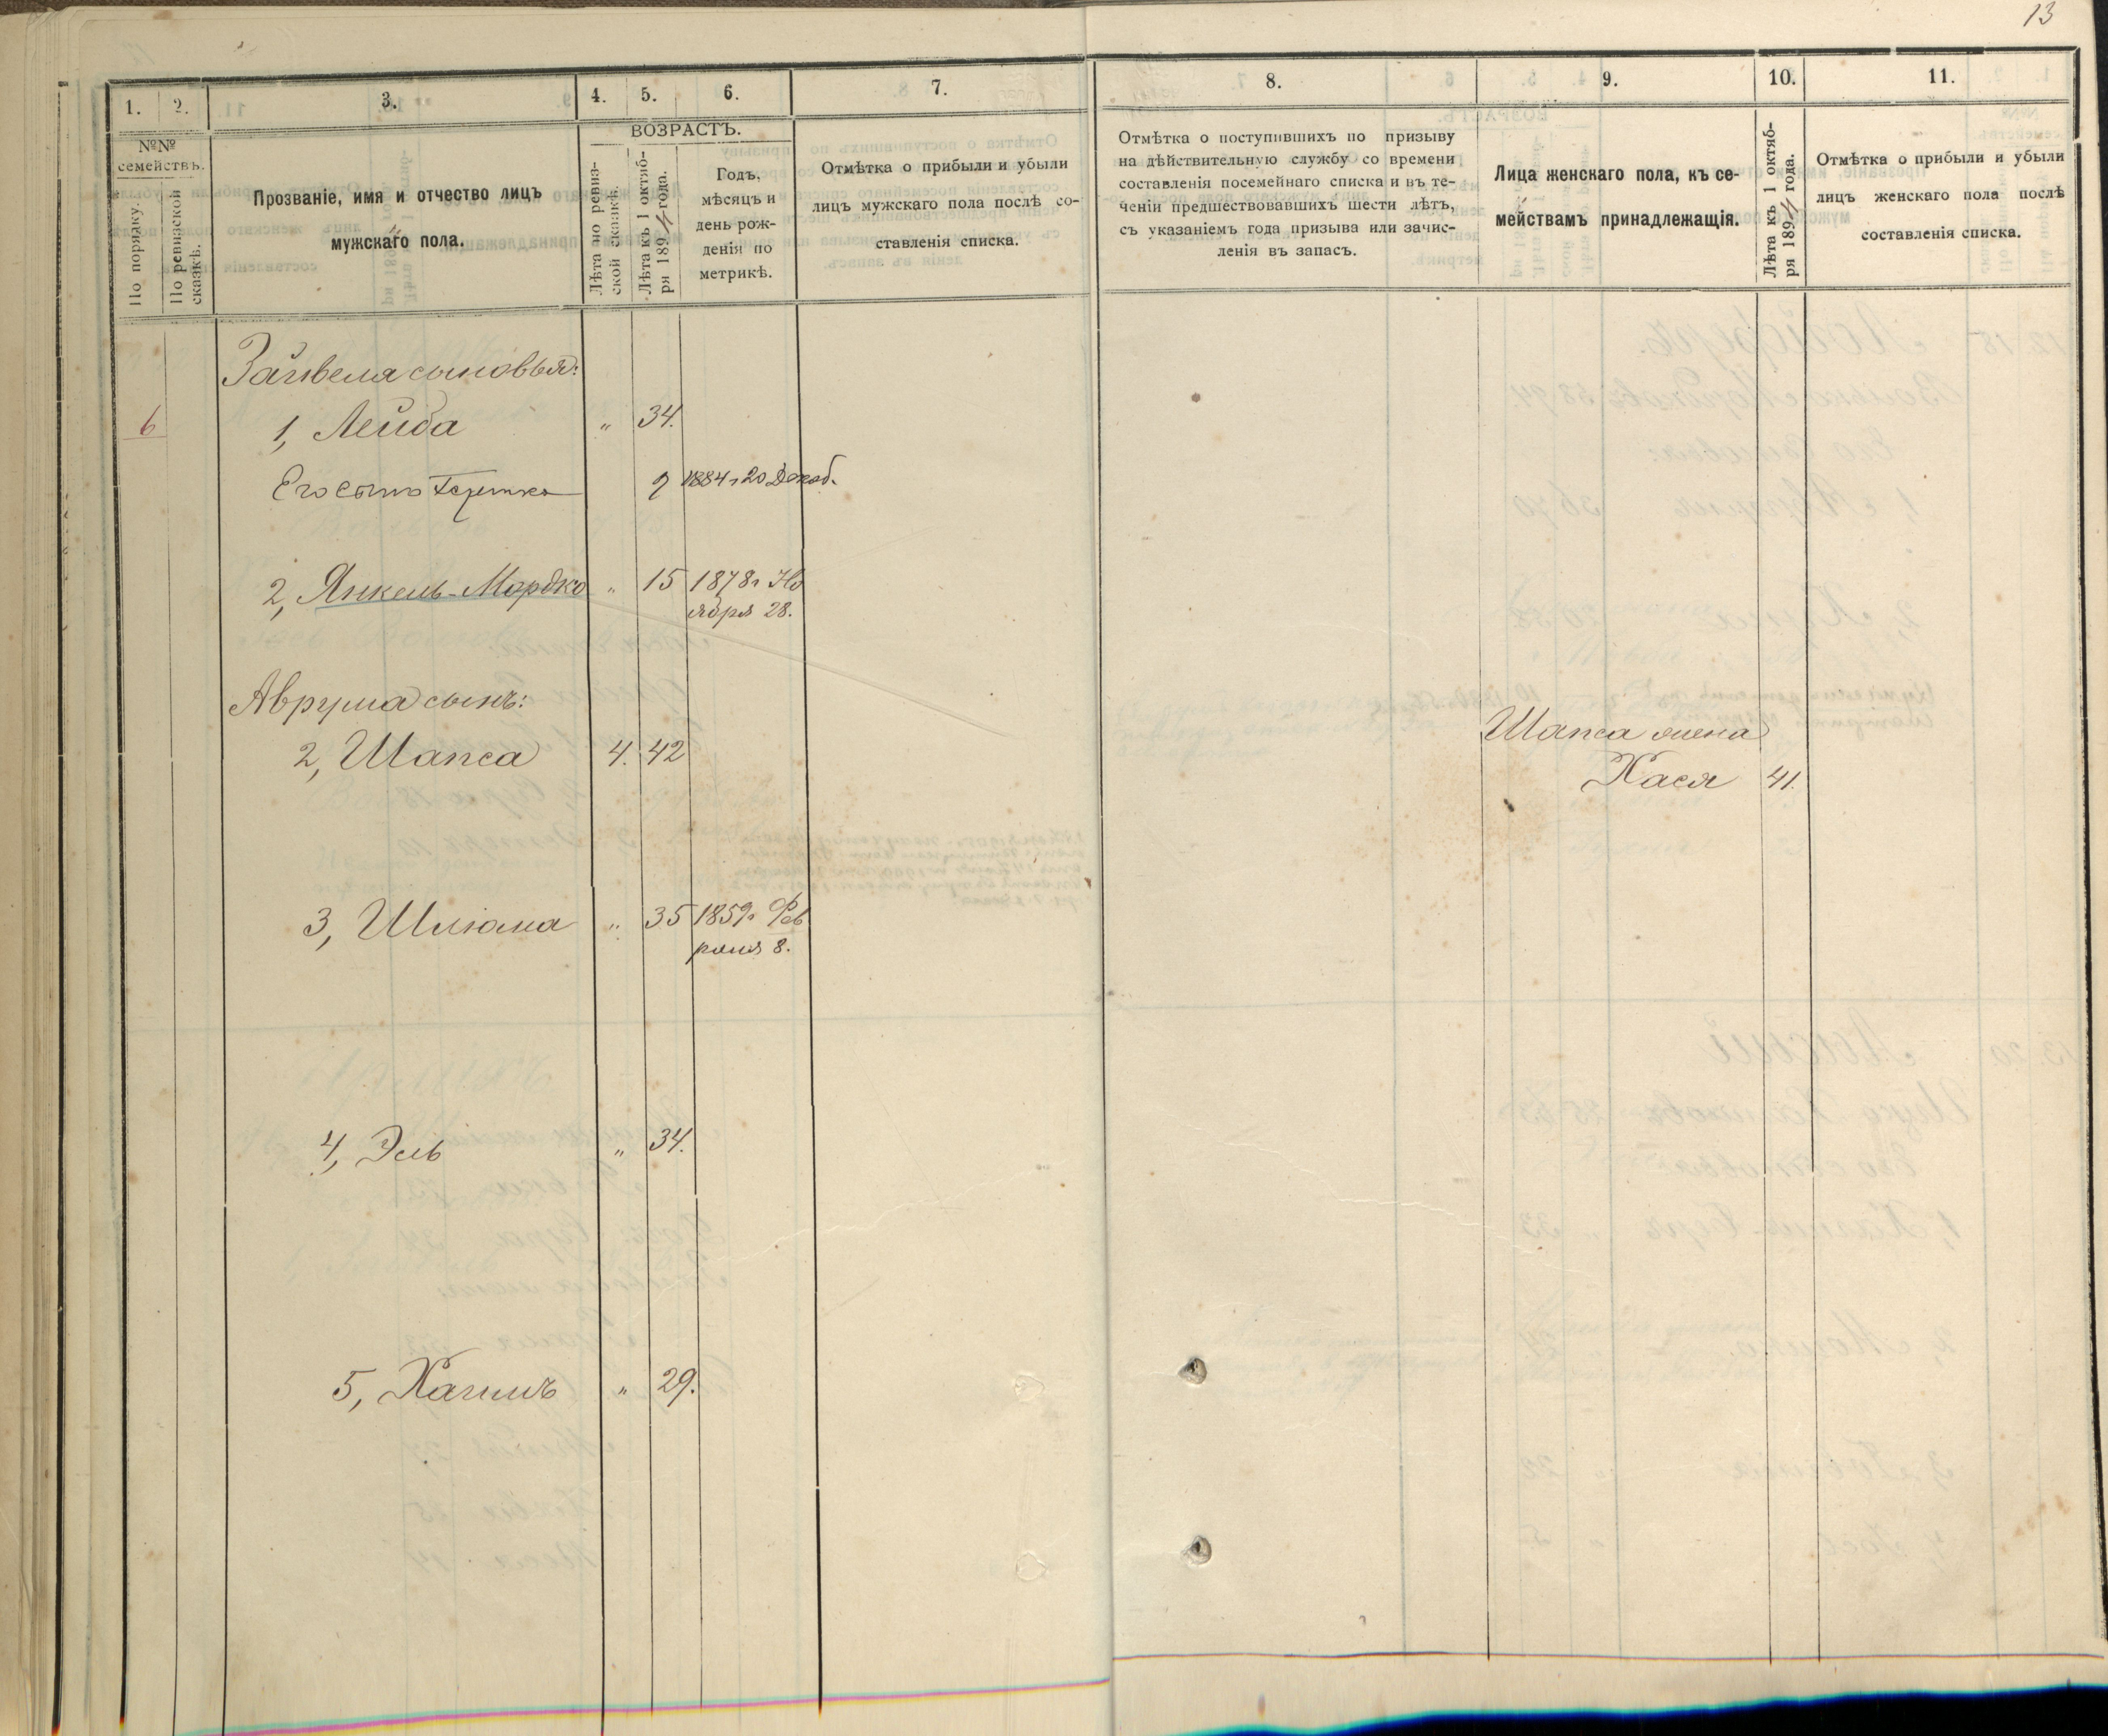 13
1.
2.
3.
4.
5.
6.
7.
8.
9.
10.
11.
№№
семействъ.
По порядку.
По ревизской
сказкѣ.
Прозваніе, имя и отчество лицъ
мужскаго пола.
ВОЗРАСТЪ.
Лѣта по ревиз-
ской сказкѣ.
Лѣта къ 1 октяб-
ря 1894 года.
Годъ,
мѣсяцъ и
день рож-
денія по
метрикѣ.
Отмѣтка о прибыли и убыли
лицъ мужскаго пола послѣ со-
ставленія списка.
Отмѣтка о поступившихъ по призыву
на дѣйствительную службу со времени
составленія посемейнаго списка и въ те-
ченіи предшествовавшихъ шести лѣтъ,
съ указаніемъ года призыва или зачис-
ленія въ запасъ.
Лица женскаго пола, къ се-
мействамъ принадлежащія.
Лѣта къ 1 октяб-
ря 1894 года.
Отмѣтка о прибыли и убыли
лицъ женскаго пола послѣ
составленія списка.
Зайвеля сыновья:
6 1, Лейба „ 34.
Его сынъ 9 1884 г 20 Декаб.
2, Янкель-Мордко „ 15 1878 г Но
ября 28.
Аврума сынъ:
2, Шапса 4. 42
Шапса жена
Хася 41.
3, Шліома „ 35 1859 г Фев
раля 8.
4, Эль „ 34.
5, Хаимъ „ 29.